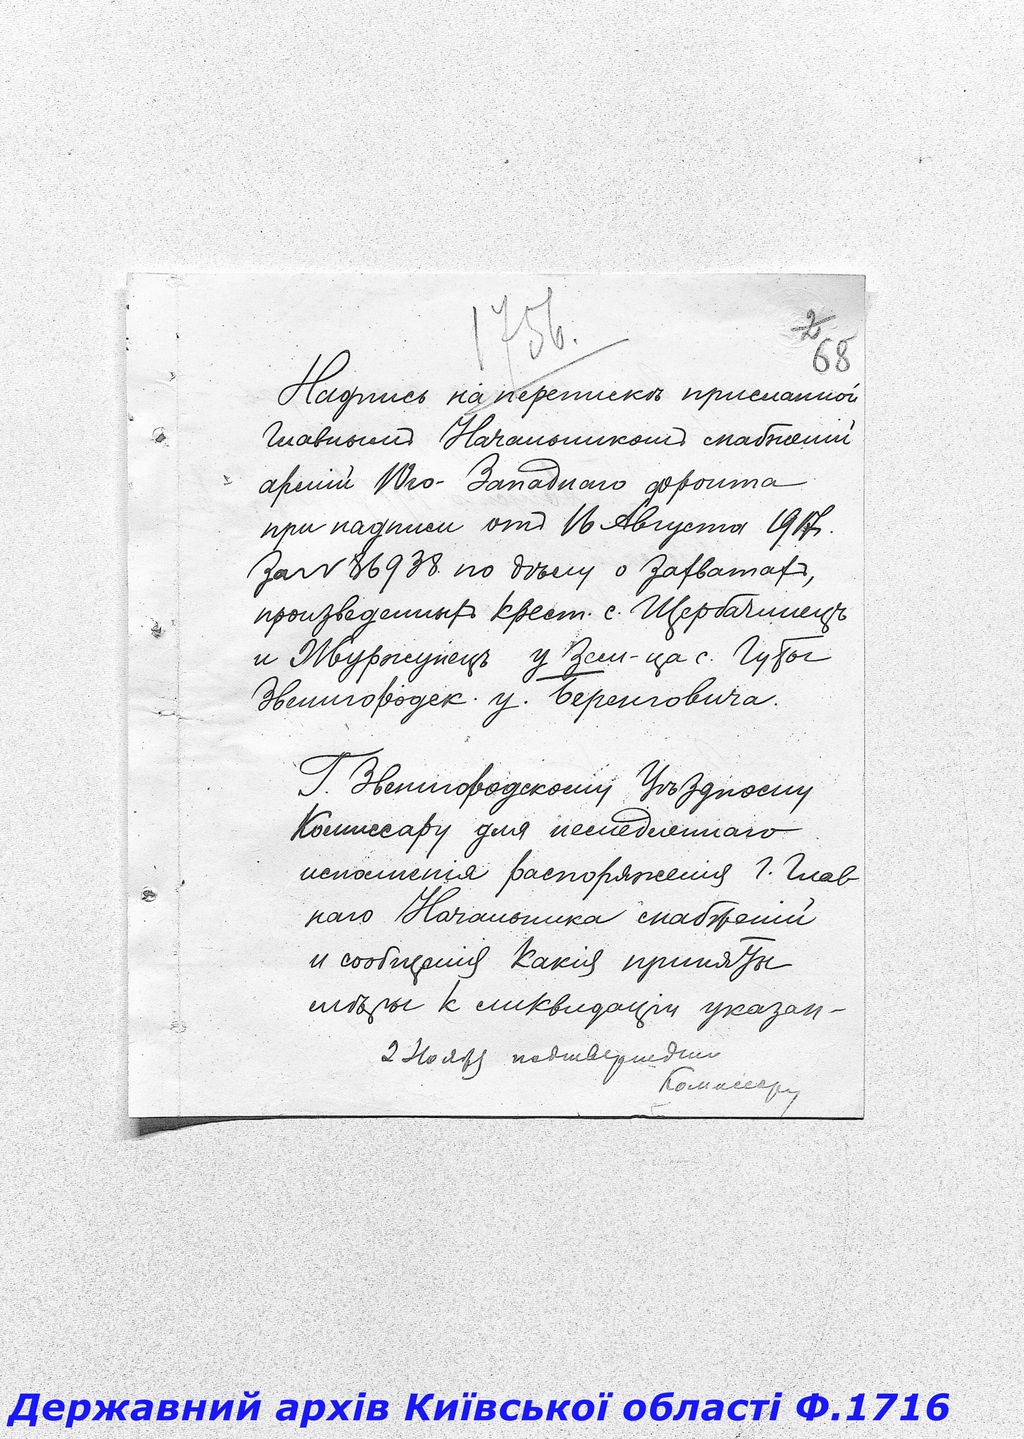 1756.
2
68
Надпись на перепискѣ присланной
Главнымъ Начальникомъ снабженій
армій Юго-Западнаго фронта
при надписи отъ 16 Августа 1917г.
за № 86938 по дѣлу о захватахъ,
произведенныхъ крест. с. Щербачинецъ
и Журжинецъ у Зем-ца с. Губы
Звенигородск. у. Беренговича.
Г. Звенигородскому Уѣздному
Комиссару для немедленнаго
исполненія распоряженія Г. Глав-
наго Начальника снабженій
и сообщенія какія приняты
мѣры к ликвидаціи указан-
2 Ноября подтверждено
Комиссару
Державний архів Київської області Ф.1716